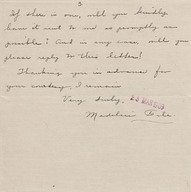 3
If there is one, will you kindly
have it sent to me as promptly as
possible? And in any case, will you
please reply to this letter?
Thanking you in advance for
your courtesy, I remain
Very truly,
Madeleine